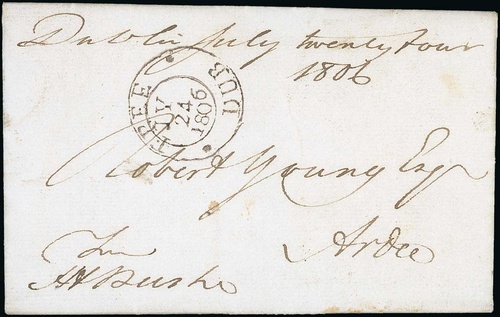 Dublin July twenty four
1806
FREE
DUB
JY
24
1806
Robert Young Esqr
Ardee
Free
Bushe